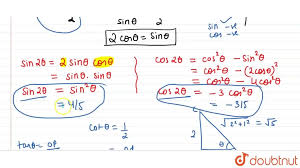 sinθ 2
sin → -ve
cos → -ve
2 cosθ = sinθ
sin 2θ = 2 sinθ cosθ
= sinθ. sinθ
sin2θ = sin²θ
= 4/5
cos2θ = cos²θ - sin²θ
= cos²θ - (2cosθ)²
= cos²θ - 4cos²θ
cos2θ = -3 cos²θ
= -3/5
cotθ = 1/2
2
√2²+1² = √5
θ
doubtnut